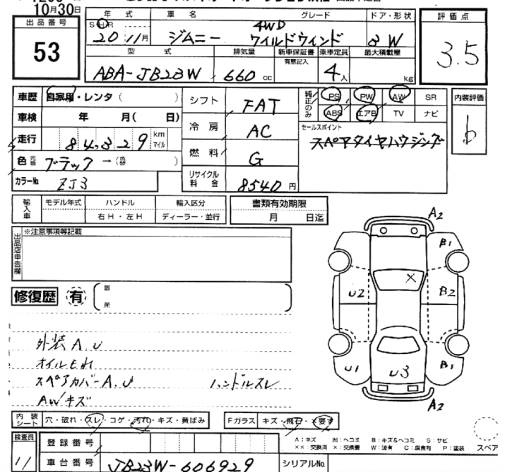 10月30日
出品番号
53
年式 車名 グレード ドア・形状
SH 20年11月 ジムニー 4WD ワイルドウィンド 3W
評価点
3.5
型式 排気量 新車保証書 乗車定員 最大積載量
有意記入
ABA-JB23W 660cc 4人 kg
車歴 自家用・レンタ( )
シフト FAT
純正のみ PS PW AW SR
ABS エアB TV ナビ
内装評価
b
車検 年 月( 日)
冷房 AC
セールスポイント
スペアタイヤハウジング
走行 84,329 km マイル
燃料 G
色 ブラック→( )
リサイクル料金 8540円
カラーNo ZJ3
輸入車 モデル年式 ハンドル 輸入区分
右H・左H ディーラー・並行
書類有効期限
月 日迄
※注意事項等記載
修復歴 有
箇所
外装A,U
オイルもれ
スペアカバーA,U ハンドルスレ
AWキズ
A2
B1
U2
X
B2
U1
U3
B1
A2
内装シート 穴・破れ・スレ・コゲ・汚れ・キズ・黄ばみ
Fガラス キズ・飛石・X要す
検査員
11
登録番号
車台番号 JB23W-606929
シリアルNo.
A:キズ U:ヘコミ B:キズ&ヘコミ S:サビ
XX:交換済 X:交換要 W:波有 C:腐食有 P:塗装
スペア